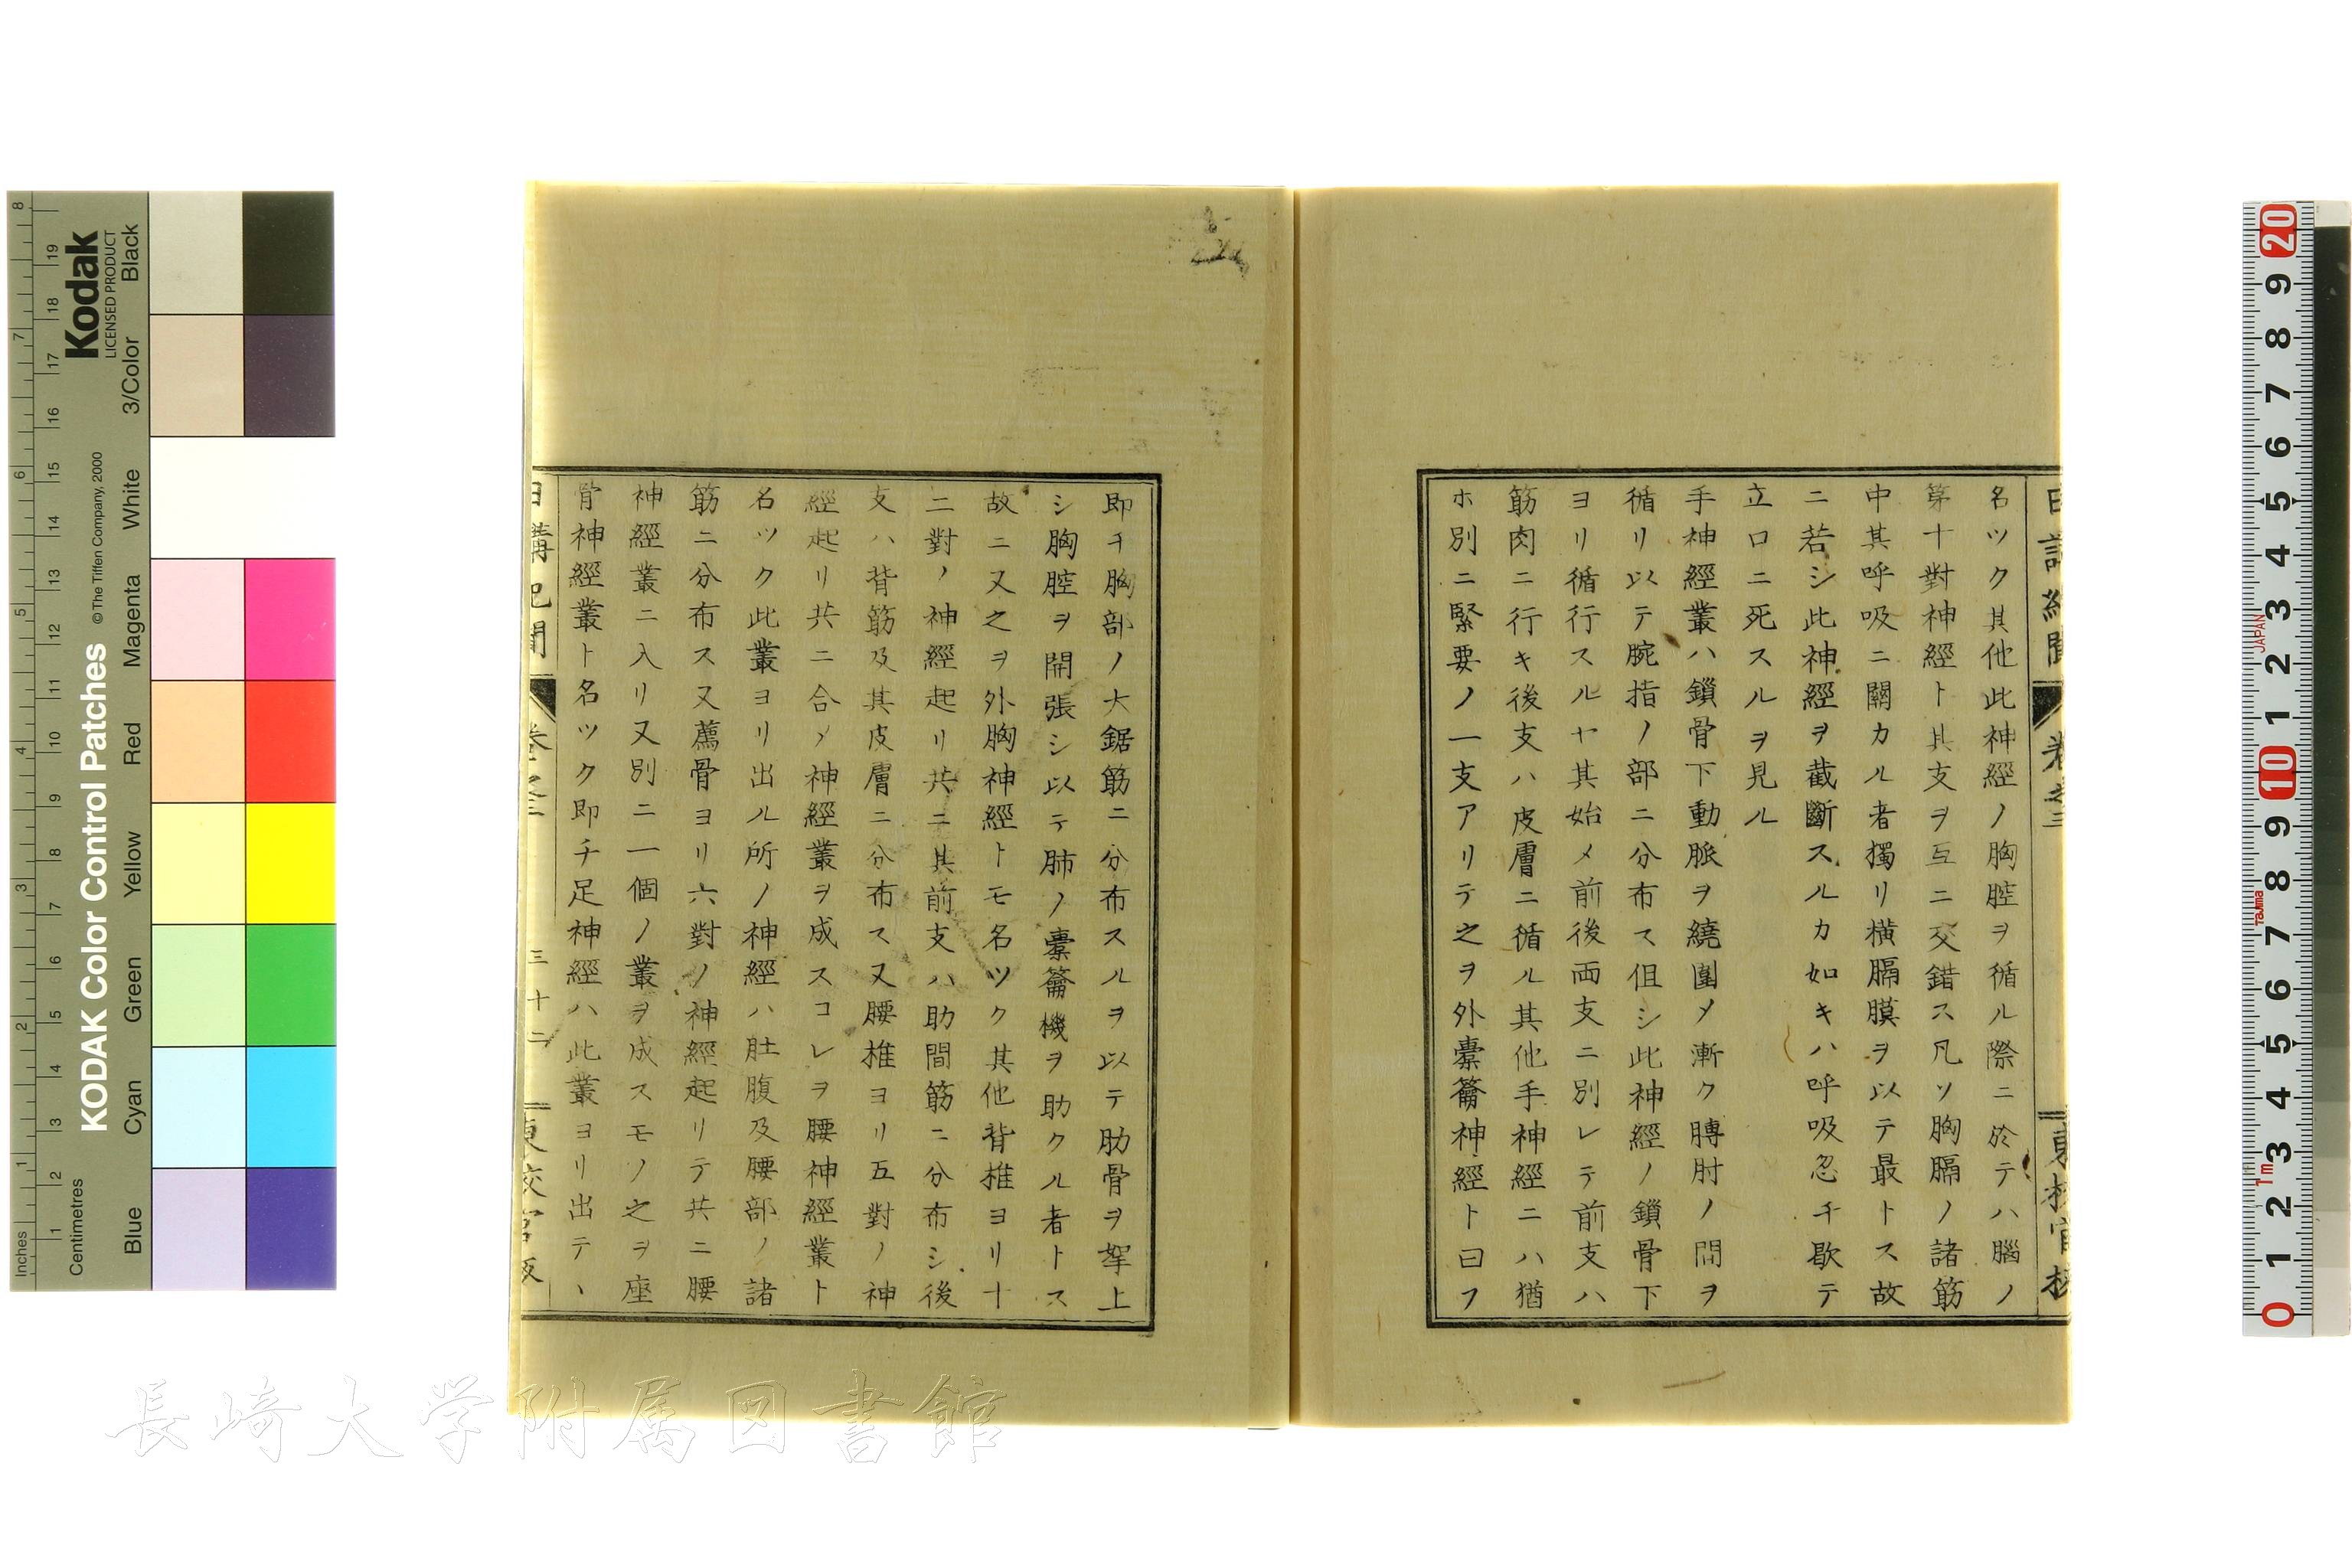 名ツク其他此神經ノ胸腔ヲ循ル際ニ於テハ腦ノ
第十對神經ト其支ヲ互ニ交錯ス凡ソ胸膈ノ諸筋
中其呼吸ニ關カル者獨リ横膈膜ヲ以テ最トス故
ニ若シ此神經ヲ截斷スルカ如キハ呼吸忽チ歇テ
立ロニ死スルヲ見ル
手神經叢ハ鎖骨下動脈ヲ繞圍メ漸ク膊肘ノ間ヲ
循リ以テ腕指ノ部ニ分布ス但シ此神經ノ鎖骨下
ヨリ循行スルヤ其始メ前後両支ニ別レテ前支ハ
筋肉ニ行キ後支ハ皮膚ニ循ル其他手神經ニハ猶
ホ別ニ緊要ノ一支アリテ之ヲ外橐籥神經ト曰フ
即チ胸部ノ大鋸筋ニ分布スルヲ以テ肋骨ヲ挐上
シ胸腔ヲ開張シ以テ肺ノ橐籥機ヲ助クル者トス
故ニ又之ヲ外胸神經トモ名ツク其他背椎ヨリ十
二對ノ神經起リ共ニ其前支ハ助間筋ニ分布シ後
支ハ背筋及其皮膚ニ分布ス又腰椎ヨリ五對ノ神
經起リ共ニ合メ神經叢ヲ成スコレヲ腰神經叢ト
名ツク此叢ヨリ出ル所ノ神經ハ肚腹及腰部ノ諸
筋ニ分布ス又薦骨ヨリ六對ノ神經起リテ共ニ腰
神經叢ニ入リ又別ニ一個ノ叢ヲ成スモノ之ヲ座
骨神經叢ト名ツク即チ足神經ハ此叢ヨリ出テヽ
日講記聞 卷之三 三十二
Kodak
LICENSED PRODUCT
KODAK Color Control Patches
© The Tiffen Company, 2000
Inches
Centimetres
Blue Cyan Green Yellow Red Magenta White 3/Color Black
JAPAN
Tajima
1m
長崎大学附属図書館